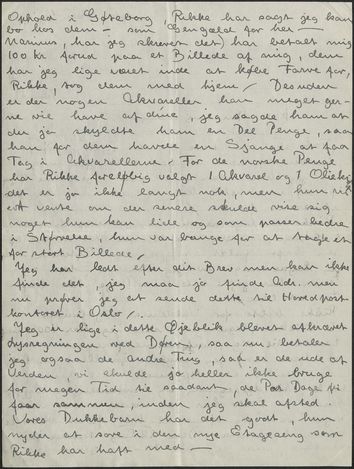 Ophold i Gøteborg, Rikke har sagt jeg kan
bo hos dem – som Gengæld for her –
Marinus, har jeg skrevet det) har betalt mig
100 Kr forud paa et Billede af mig, dem
har jeg lige været inde at købe Farve for,
Rikke, tog dem med hjem / Desuden
er der nogen Akvareller han meget ger-
ne vil have af dine, jeg sagde ham at
du jo skyldte ham en Del Penge, saa
han før dem havde en Sjange at faa
Tag i Akvarellerne – For de norske Penge
har Rikke foreløbig valgt 1 Akvarel og 1 Olie
det er jo ikke langt nok, men hun vil
vente om der senere skulde vise sig
noget hun kan lide og som passer bedre
i Størrelse, hun var bange for at tage et
for stort Billede /
Jeg har ledt efter dit Brev men kan ikke
finde det, jeg maa jo finde Adr. men
nu prøver jeg at sende dette til Hovedpost-
kontoret i Oslo /
Jeg er lige i dette Øjeblik blevet afkrævet
Lysregningen ved Døren, saa nu betaler
jeg ogsaa de andre Ting, saa er de ude af
Verden vi skulde jo heller ikke bruge
for megen Tid til saadant, de Par Dage vi
faar sammen, inden jeg skal afsted.
Vores Dukkebarn har det godt, hun
nyder at sove i den nye Etageseng som
Rikke har haft med –